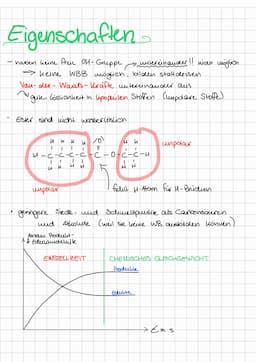 Eigenschaften
- haben keine freie OH-Gruppe → untereinander!! wäre möglich
→ keine WBB möglich, bilden stattdessen
Van-der-Waals-Kräfte untereinander aus
→ gute Löslichkeit in lipophilen Stoffen (unpolare Stoffe)
• Ester sind nicht wasserlöslich
unpolar
H H H H O H H
H-C-C-C-C-C-O-C-C-H
H H H H H H
unpolar
fehlt H-Atom für H-Brücken
• geringere Siede- und Schmelzpunkte als Carbonsäuren
und Alkohole (weil sie keine WB ausbilden können)
Produkt-
EINSTELLZEIT
CHEMISCHES GLEICHGEWICHT
Produkte
Edukte
t in s